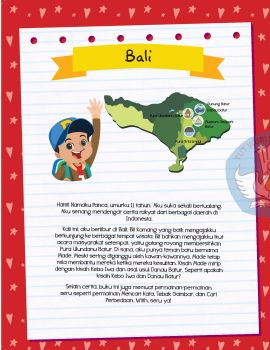 Bali
Gunung Batur
Pura Ulundanu Batur
Hai!!! Namaku Panca, umurku 11 tahun. Aku suka sekali bertualang.
Aku senang mendengar cerita rakyat dari berbagai daerah di
Indonesia.
Kali ini, aku berlibur di Bali. Bli Komang yang baik mengajakku
berkunjung ke berbagai tempat wisata. Bli bahkan mengajakku ikut
acara masyarakat setempat, yaitu gotong royong membersihkan
Pura Ulundanu Batur. Di sana, aku punya teman baru bernama
Made. Meski sering diganggu oleh kawan-kawannya, Made tetap
rela membantu mereka ketika mereka kesulitan. Kisah Made mirip
dengan kisah Kebo Iwa dan asal usul Danau Batur. Seperti apakah
kisah Kebo Iwa dan Danau Batur?
Selain cerita, buku ini juga memuat permainan-permainan
seru seperti permainan Mencari Kata, Tebak Gambar, dan Cari
Perbedaan. Wiiih, seru ya!